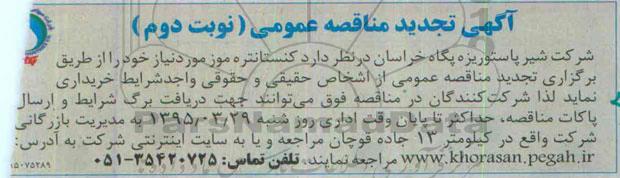 آگهی تجدید مناقصه عمومی (نوبت دوم)
شرکت شیر پاستوریزه پگاه خراسان در نظر دارد کنسانتره موز مورد نیاز خود را از طریق
برگزاری تجدید مناقصه عمومی از اشخاص حقیقی و حقوقی واجد شرایط خریداری
نماید لذا شرکت کنندگان در مناقصه فوق می توانند جهت دریافت برگ شرایط و ارسال
پاکات مناقصه، حداکثر تا پایان وقت اداری روز شنبه ۱۳۹۵/۰۳/۲۹ به مدیریت بازرگانی
شرکت واقع در کیلومتر ۱۳ جاده قوچان مراجعه و یا به سایت اینترنتی شرکت به آدرس:
www.khorasan.pegah.ir مراجعه نمایند. تلفن تماس: ۳۵۴۲۰۷۲۵-۰۵۱
۹۵۰۷۵۲۸۹